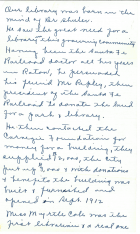 Our library was born in the
mind of Dr. Shuler.
He saw the great need for a
library this growing community
Having been the Santa Fe
Railroad doctor all his years
in Raton, he persuaded
his friend Mr. Ripley, then
president of the Santa Fe
Railroad to donate the land
for a park & library.
He then contacted the
Carnegie Foundations for
money for a building, they
supplied the city
donations
& benefits the building was
built & furnished and
opened in Sept. 1912
Miss Myrtle Cole was the
first librarian & a real one